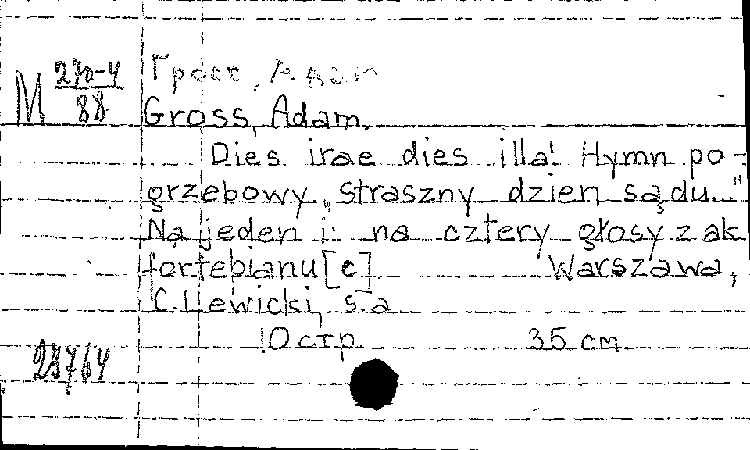 М 270-4/88
Гросс, Адам
Gross, Adam.
Dies irae dies illa! Hymn po-
grzebowy „straszny dzien sądu..."
Na jeden i na cztery głosy z ak
fortepianu [c] Warszawa,
C. Lewicki, s.a
10 стр. 35 cm
28764